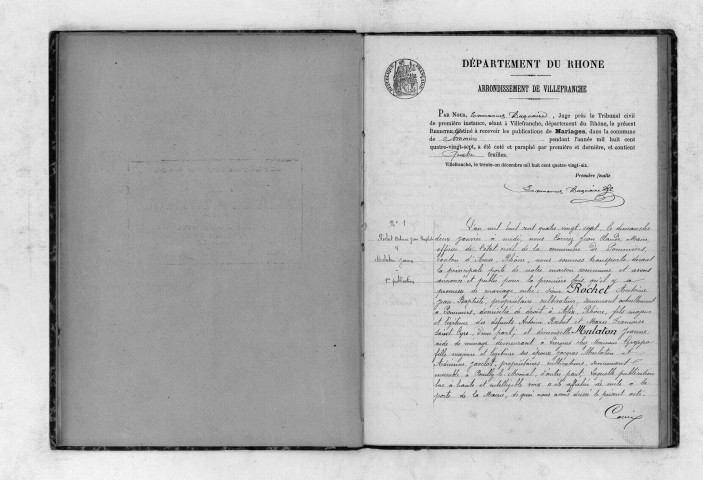 DÉPARTEMENT DU RHONE
ARRONDISSEMENT DE VILLEFRANCHE
PAR NOUS, Emmanuel Duquaire, Juge près le Tribunal civil
de première instance, séant à Villefranche, département du Rhône, le présent
REGISTRE destiné à recevoir les publications de Mariages, dans la commune
de Pommiers pendant l'année mil huit cent
quatre-vingt-sept, a été coté et paraphé par première et dernière, et contient
quatre feuilles.
Villefranche, le trente-un décembre mil huit cent quatre-vingt-six.
Première feuille
Emmanuel Duquaire
N° 1
Rochet Antoine Jean Baptiste
&
Mulaton Jeanne
1re publication
L'an mil huit cent quatre vingt sept, le dimanche
deux janvier à midi, nous Jean Claude Maire
officier de l'état civil de la commune de Pommiers,
canton d'Anse, Rhône, nous sommes transporté devant
la principale porte de notre maison commune et avons
annoncé et publié pour la première fois qu'il y a
promesse de mariage entre : sieur Rochet Antoine
Jean Baptiste, propriétaire cultivateur, demeurant actuellement
à Pommiers, domicilié de droit à Alix, Rhône, fils majeur
et légitime des défunts Antoine Rochet et Marie Françoise
d'une part; et demoiselle Mulaton Jeanne
aide de ménage demeurant à chez Monsieur
fille majeure et légitime des époux Jacques Mulaton et
propriétaires cultivateurs, demeurant
ensemble à Pouilly le Monial, d'autre part. Laquelle publication
lue à haute et intelligible voix a été affichée de suite à la
porte de la Mairie, de quoi nous avons dressé le présent acte.